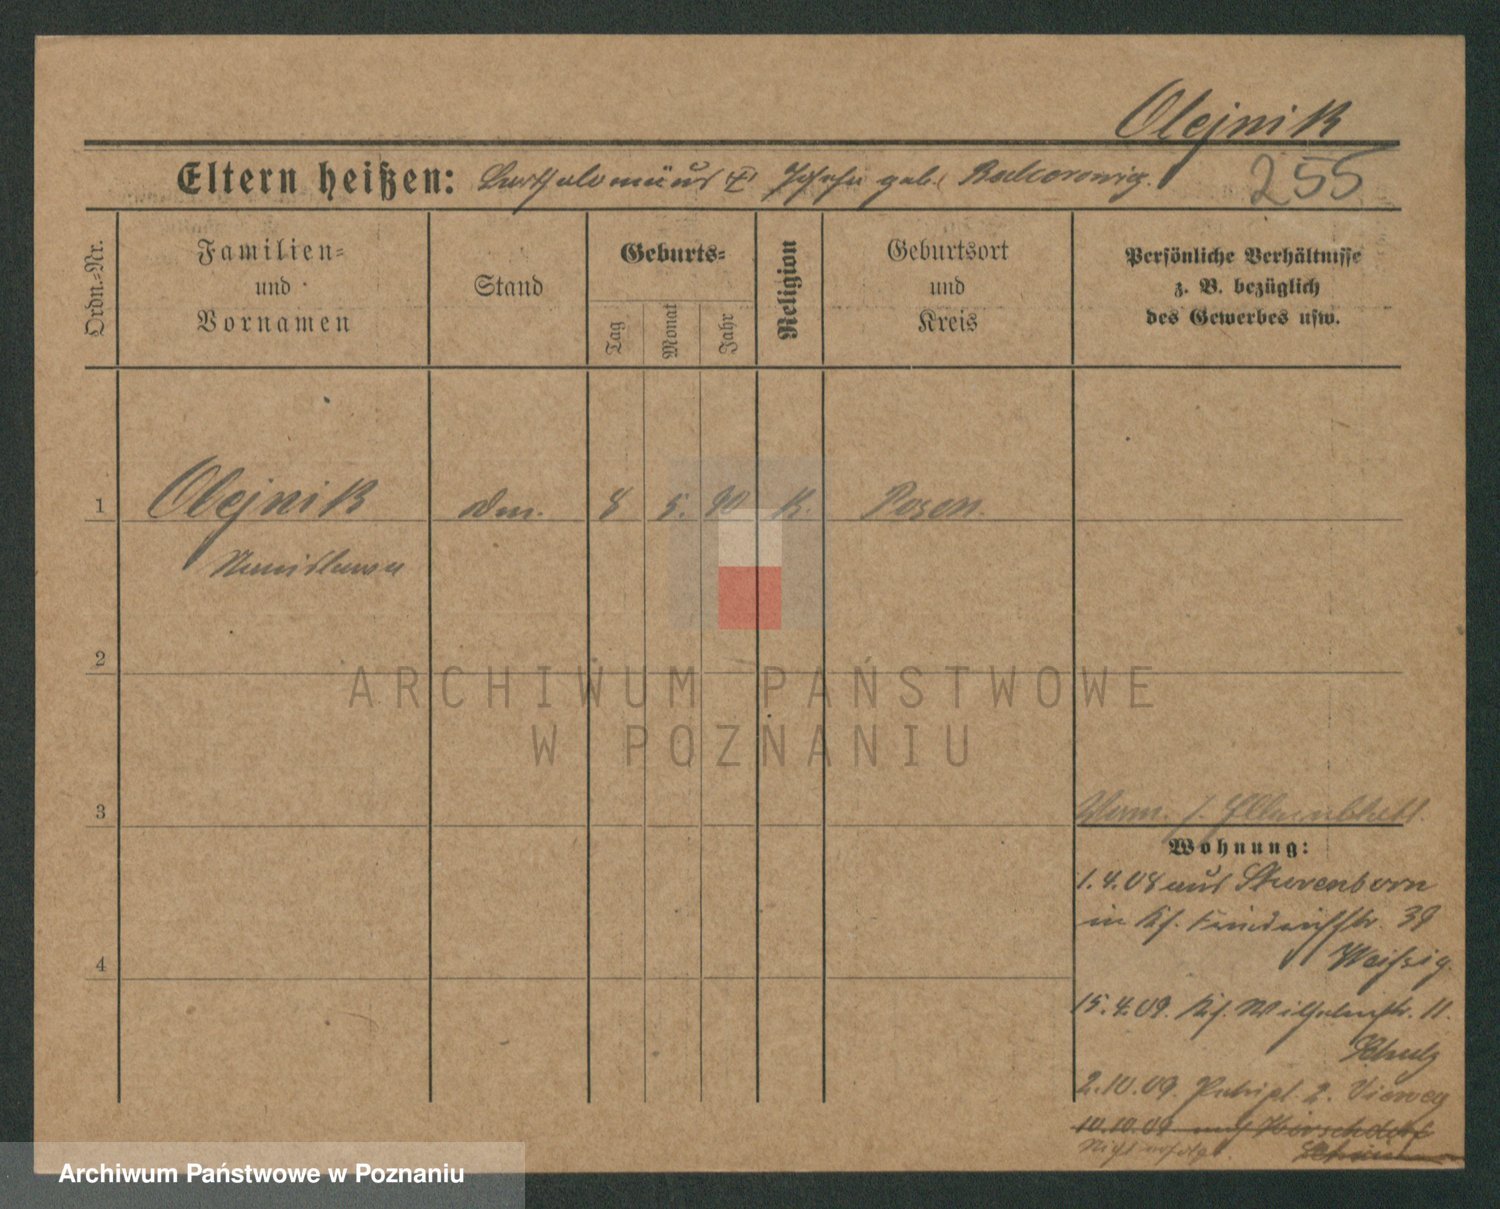 Olejnik
Eltern heißen: Bartholomäus & Josefa geb.
255
Ordn.-Nr.
Familien-
und
Vornamen
Stand
Geburts-
Tag
Monat
Jahr
Religion
Geburtsort
und
Kreis
Persönliche Verhältnisse
z. B. bezüglich
des Gewerbes usw.
1 Olejnik 8 5. 90 K. Posen.
2
ARCHIWUM PAŃSTWOWE
W POZNANIU
3
Wohnung:
1.4.08 aus
in Friedrichstr. 39
4
15.4.09. Wilhelmstr. 11.
Schulz
2.10.09. Petripl. 2. Vieweg
10.10.09 nach
Archiwum Państwowe w Poznaniu